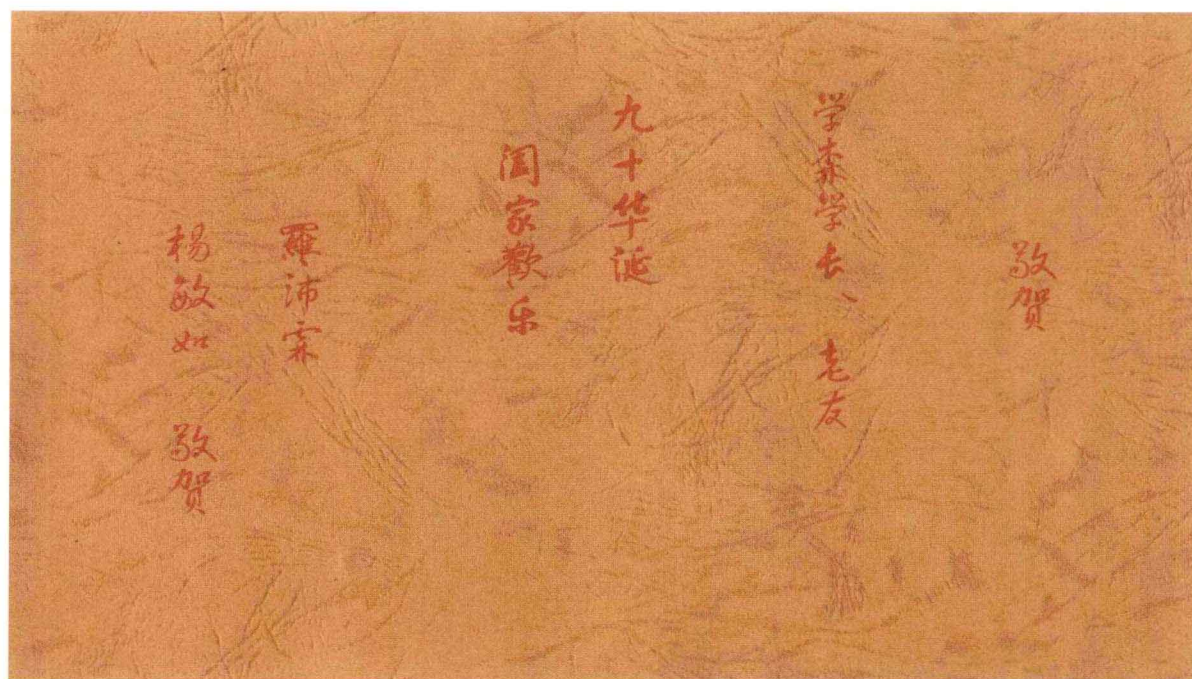 敬贺
学森学长、老友
九十华诞
阖家歡乐
羅沛霖
楊敏如 敬贺